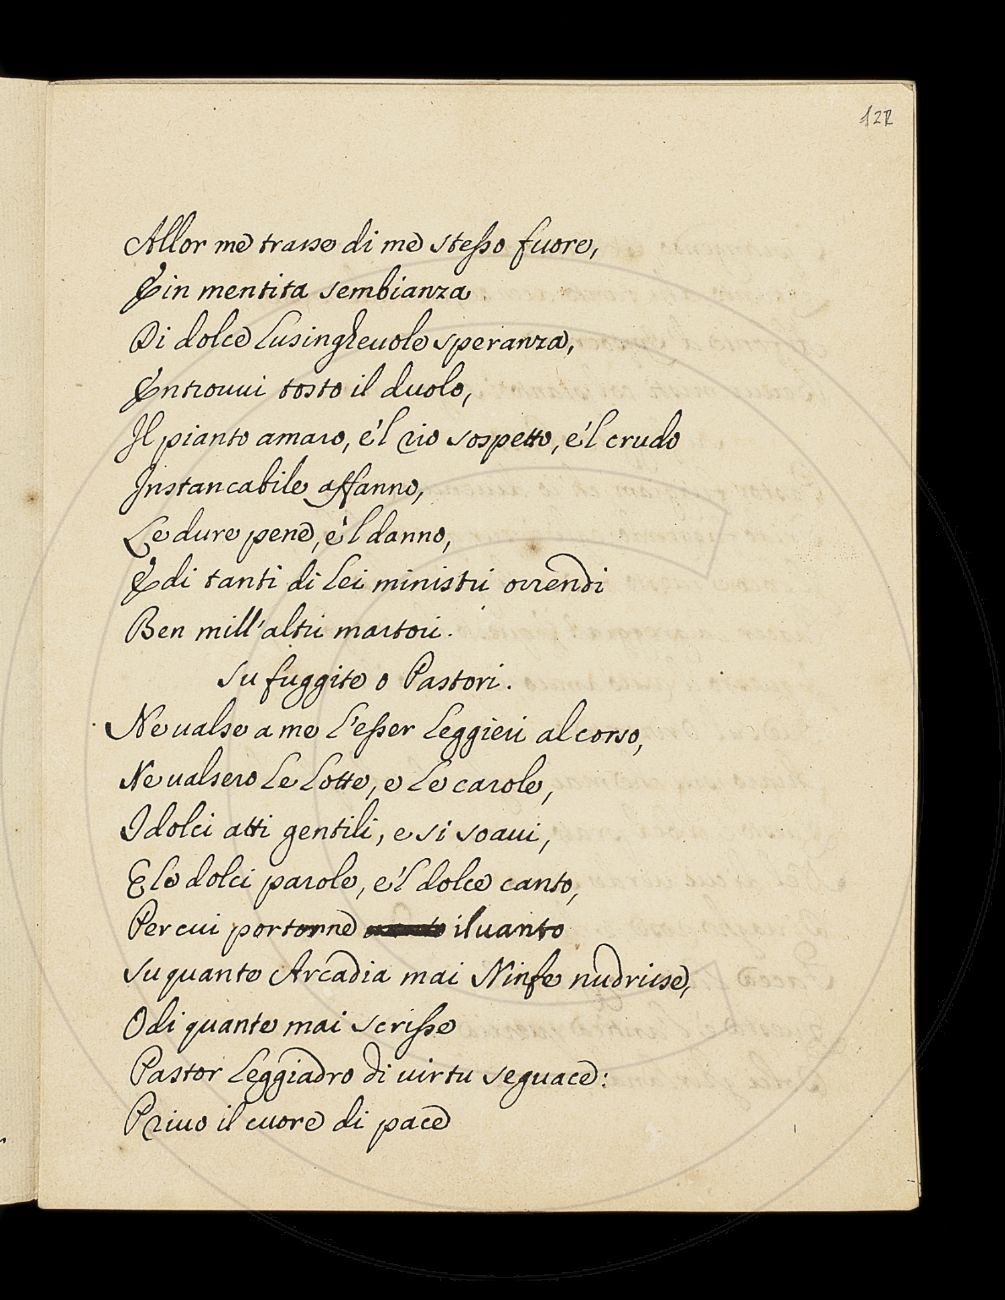 122
Allor me trasse di me stesso fuore,
E in mentita sembianza
Di dolce Lusingheuole speranza,
Entrouui tosto il duolo,
Il pianto amaro, e'l rio sospetto, e'l crudo
Instancabile affanno,
Le dure pene, e'l danno,
E di tanti di Lei ministri orrendi
Ben mill'altri martori.
Su fuggite o Pastori.
Ne ualse a me l'esser Leggieri al corso,
Ne ualsero Le Lotte, e Le carole,
I dolci atti gentili, e si soaui,
E le dolci parole, e'l dolce canto,
Per cui portonne il uanto
Su quante Arcadia mai Ninfe nudrisse,
O di quante mai scrisse
Pastor Leggiadro di uirtu seguace:
Priuo il cuore di pace